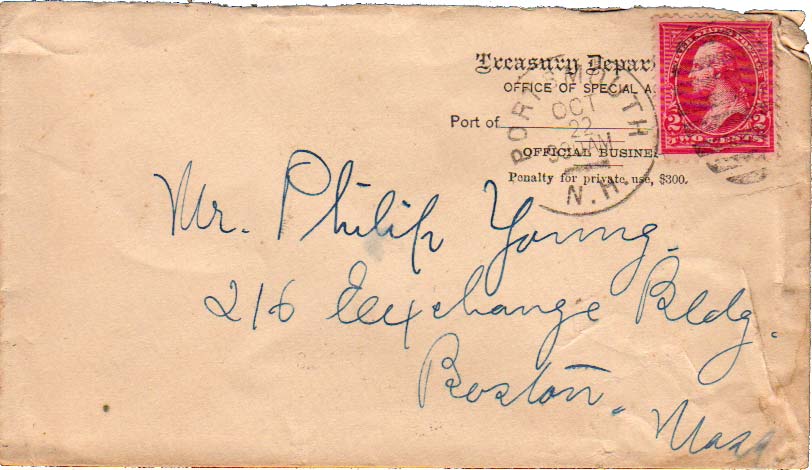 Treasury Depar
OFFICE OF SPECIAL A
Port of
OFFICIAL BUSINE
Penalty for private use, $300.
PORTSMOUTH
OCT
22
930AM
N.H.
TWO CENTS
2 2
Mr. Philip Young.
216 Exchange Bldg.
Boston. Mass